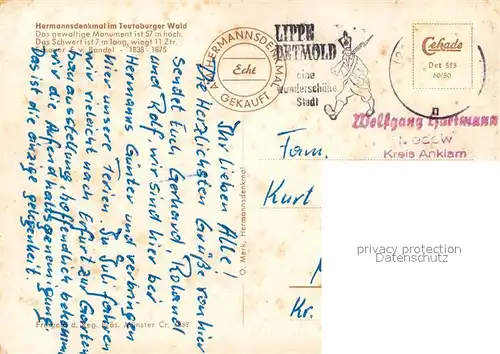 Hermannsdenkmal im Teutoburger Wald
Das gewaltige Monument ist 57 m hoch.
Das Schwert ist 7 m lang, wiegt 11 Ztr.
E. v. Bandel - 1838-1875
AM HERMANNSDENKMAL
Echt
GEKAUFT
LIPPE
DETMOLD
eine
wunderschöne
Stadt
Cekade
Det 523
60/50
Wolfgang Hartmann
Kreis Anklam
Fam.
Kurt
Kr.
Ihr lieben Alle!
Die Herzlichsten Grüße von hier
sendet Euch Gerhard, Roland
und Rolf, wir sind hier bei
Hermanns Gunter und verbringen
hier unsere Ferien. Im Juli fahren
wir vielleicht nach Erfurt zur Garten-
bauausstellung, hoffentlich bekommen
wir die Aufenthaltsgenehmigung.
Das ist die einzige gelegenheit.
O. Merk, Hermannsdenkmal
Freigeg. d. Reg. Präs. Münster Cr.
privacy protection
of adressees